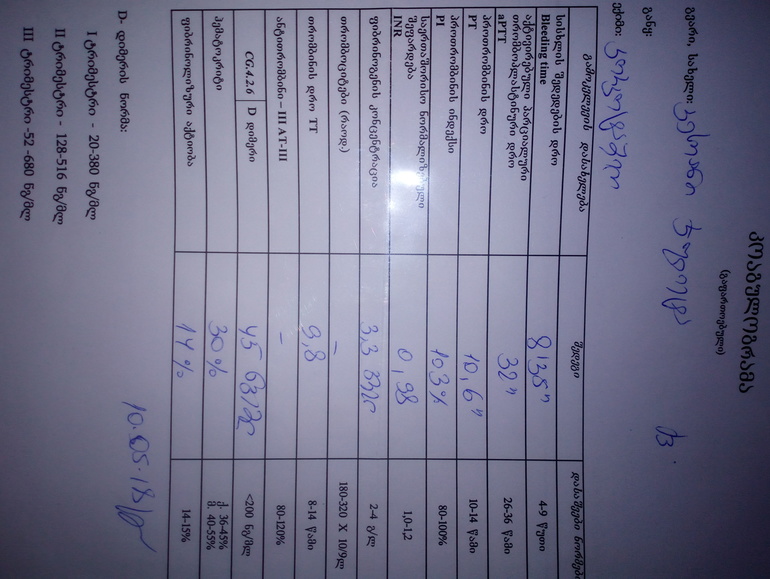 კოაგულოგრამა
(გაფართოებული)
გვარი, სახელი:
განყ:
ექიმი:
გამოკვლევის დასახელება შედეგი დასაშვები ნორმები
სისხლის შედედების დრო
Bleeding time 8'35" 4-9 წუთი
აქტივირებული პარციალური
თრომბოპლასტინური დრო
aPTT 32" 26-36 წამი
პროთრომბინის დრო
PT 10,6" 10-14 წამი
პროთრომბინის ინდექსი
PI 103% 80-100%
საერთაშორისო ნორმალიზებული
შეფარდება
INR 0,98 1,0-1,2
ფიბრინოგენის კონცენტრაცია 3,3 გ/ლ 2-4 გ/ლ
თრომბოციტები (რაოდ) – 180-320 X 10/9ლ
თრომბინის დრო TT 9,8 8-14 წამი
ანტითრომბინი – III AT-III – 80-120%
CG.4.2.6 D დიმერი 45 ნგ/მლ <200 ნგ/მლ
ჰემატოკრიტი 30% ქ. 36-45%
მ. 40-55%
ფიბრინოლიზური აქტიობა 14% 14-15%
10.05.18
D- დიმერის ნორმა:
I ტრიმესტრი - 20-380 ნგ/მლ
II ტრიმესტრი - 128-516 ნგ/მლ
III ტრიმესტრი -52 -680 ნგ/მლ